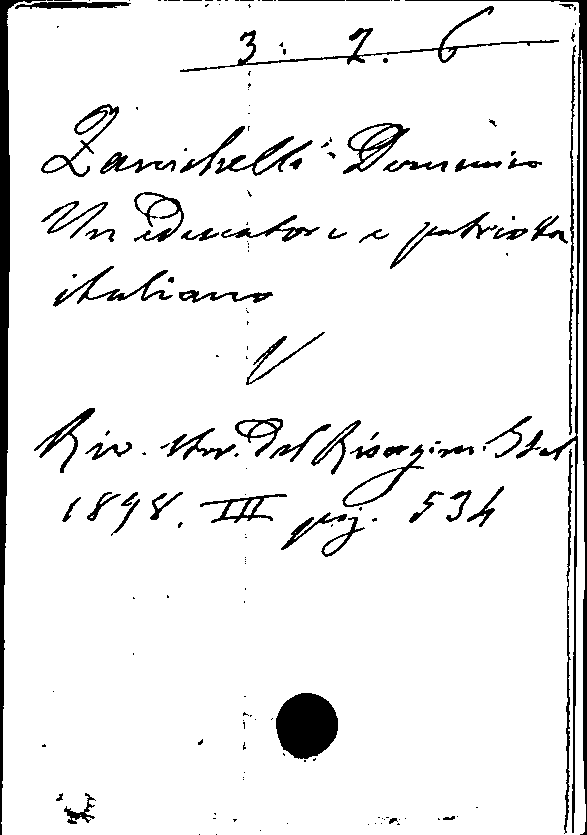 3. 2. 6
Zanichelli Domenico
Un educatore e patriotta
italiano
V
Riv. stor. del Risorgim. Ital
1898. III pag. 534